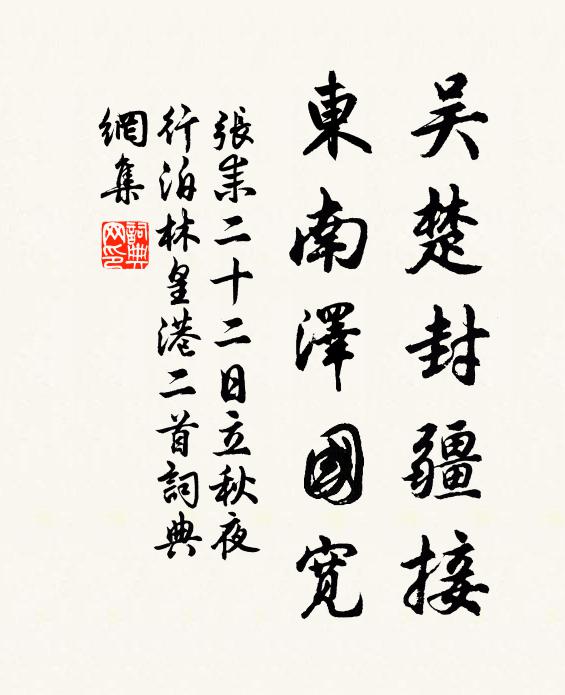 吴楚封疆接
東南澤國寬
張耒二十二日立秋夜
行泊林皇港二首詞典
網集
詞典
网印